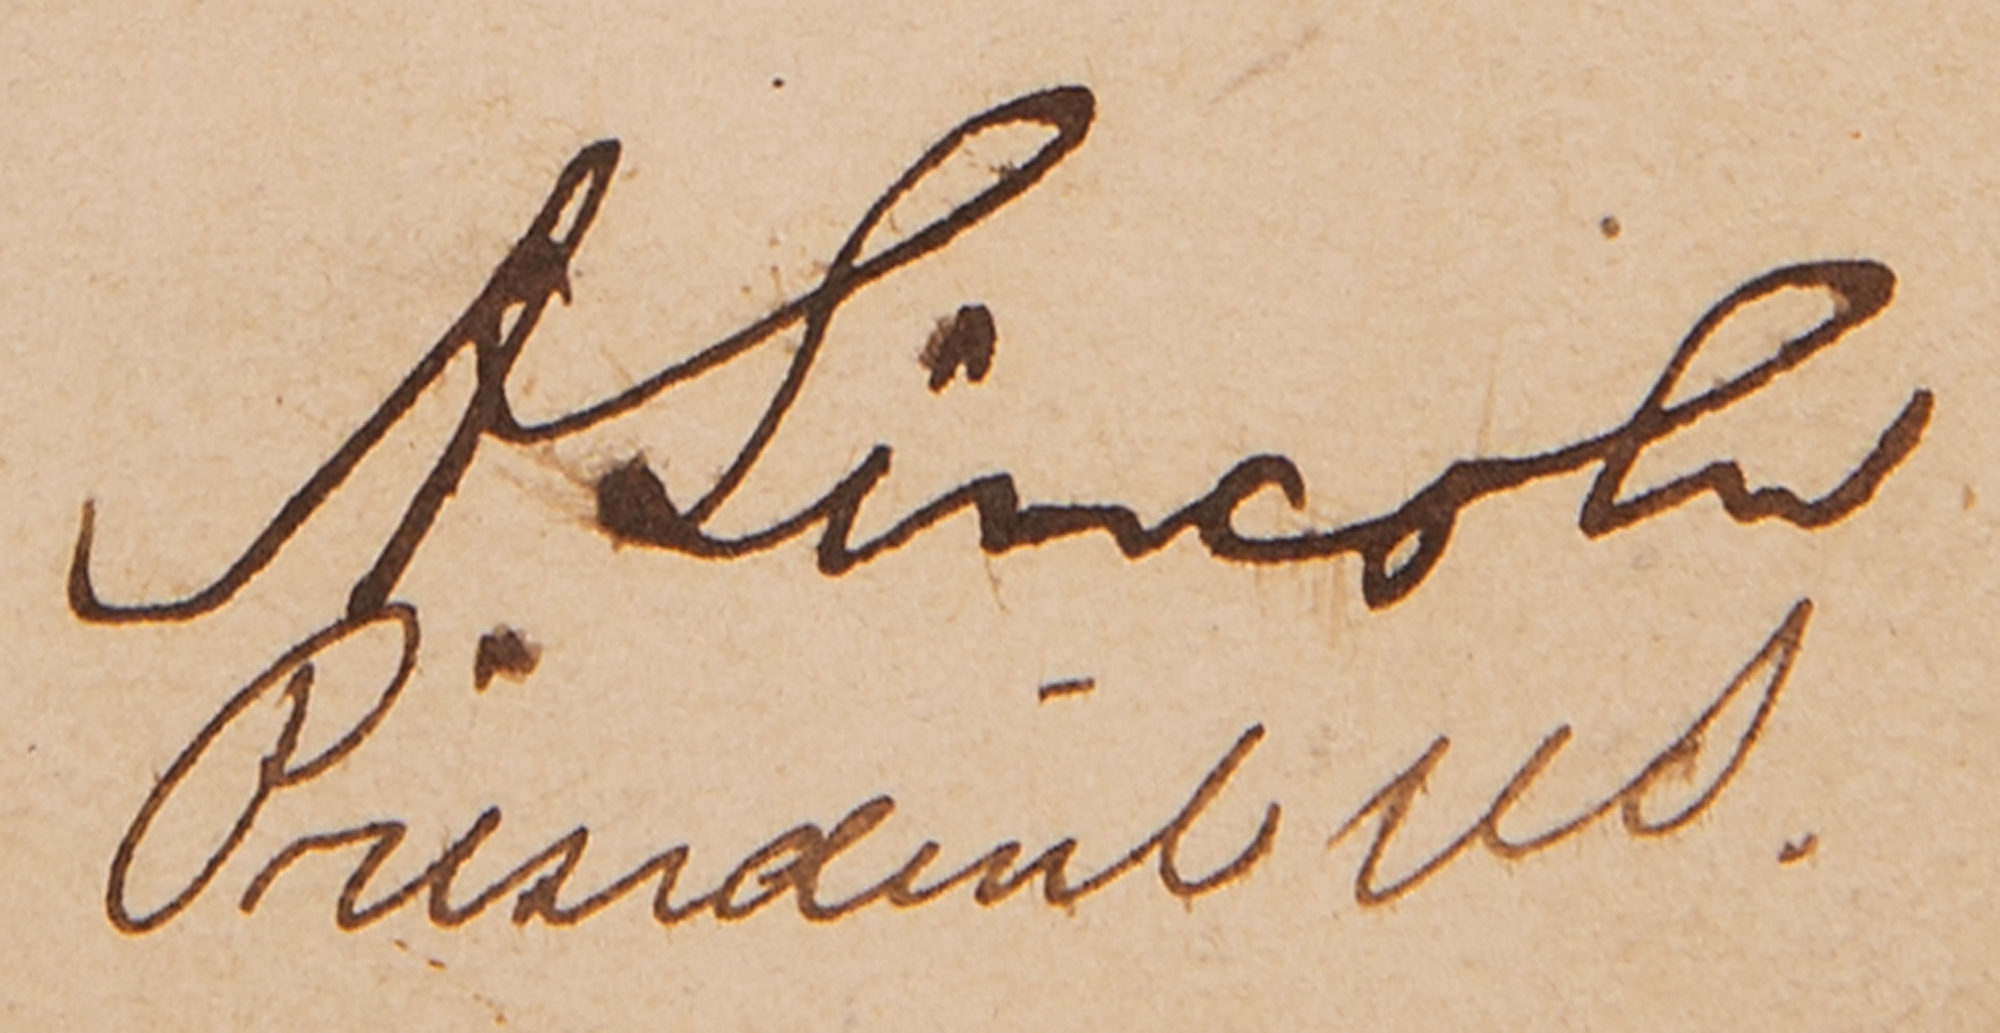 A Lincoln
President U S.